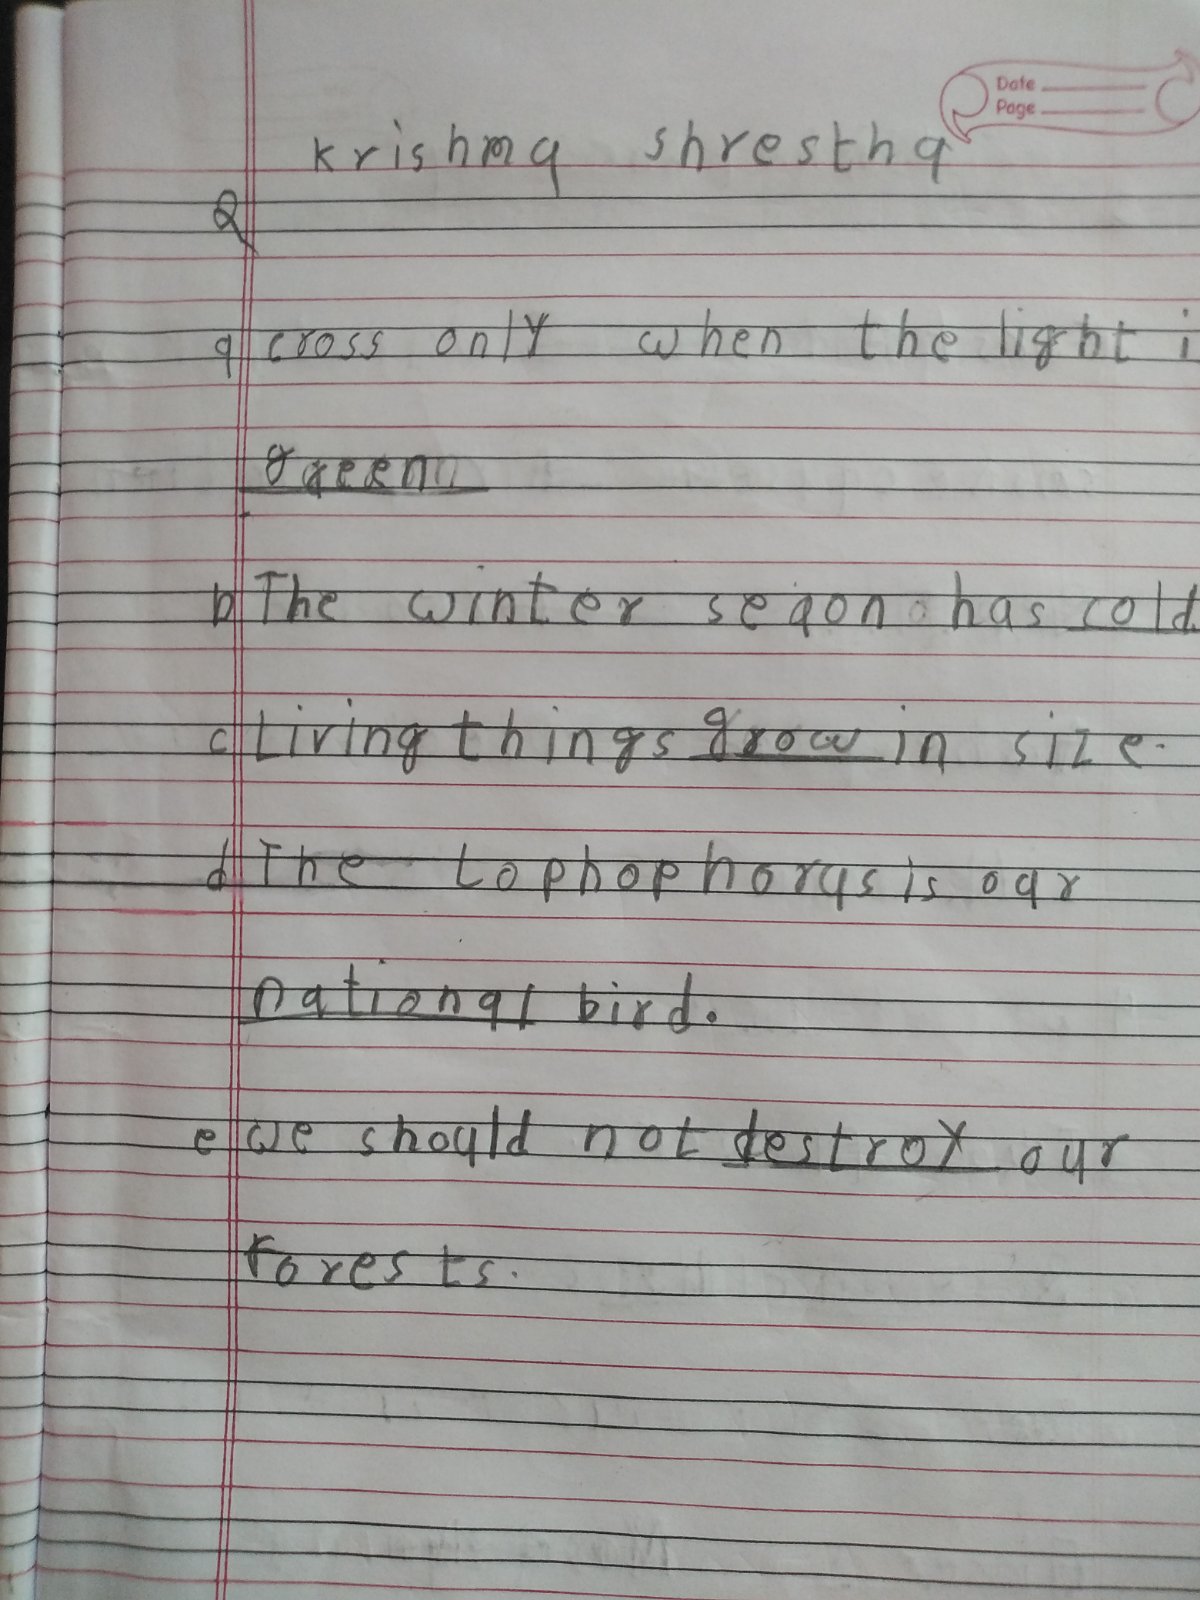 Date
Page
Krishma shrestha
Q
a cross only when the light i
green
b The winter seaon has cold
c Living things grow in size.
d The lophophorus is our
national bird.
e we should not destroy our
forests.